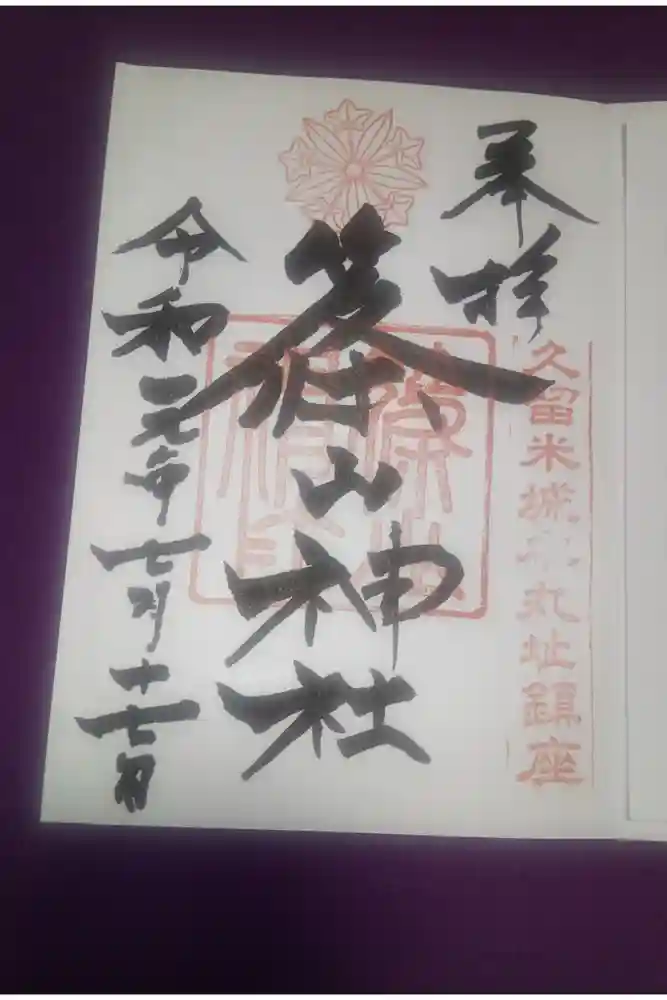 奉拝
久留米城本丸址鎮座
篠山神社
令和元年七月十七日